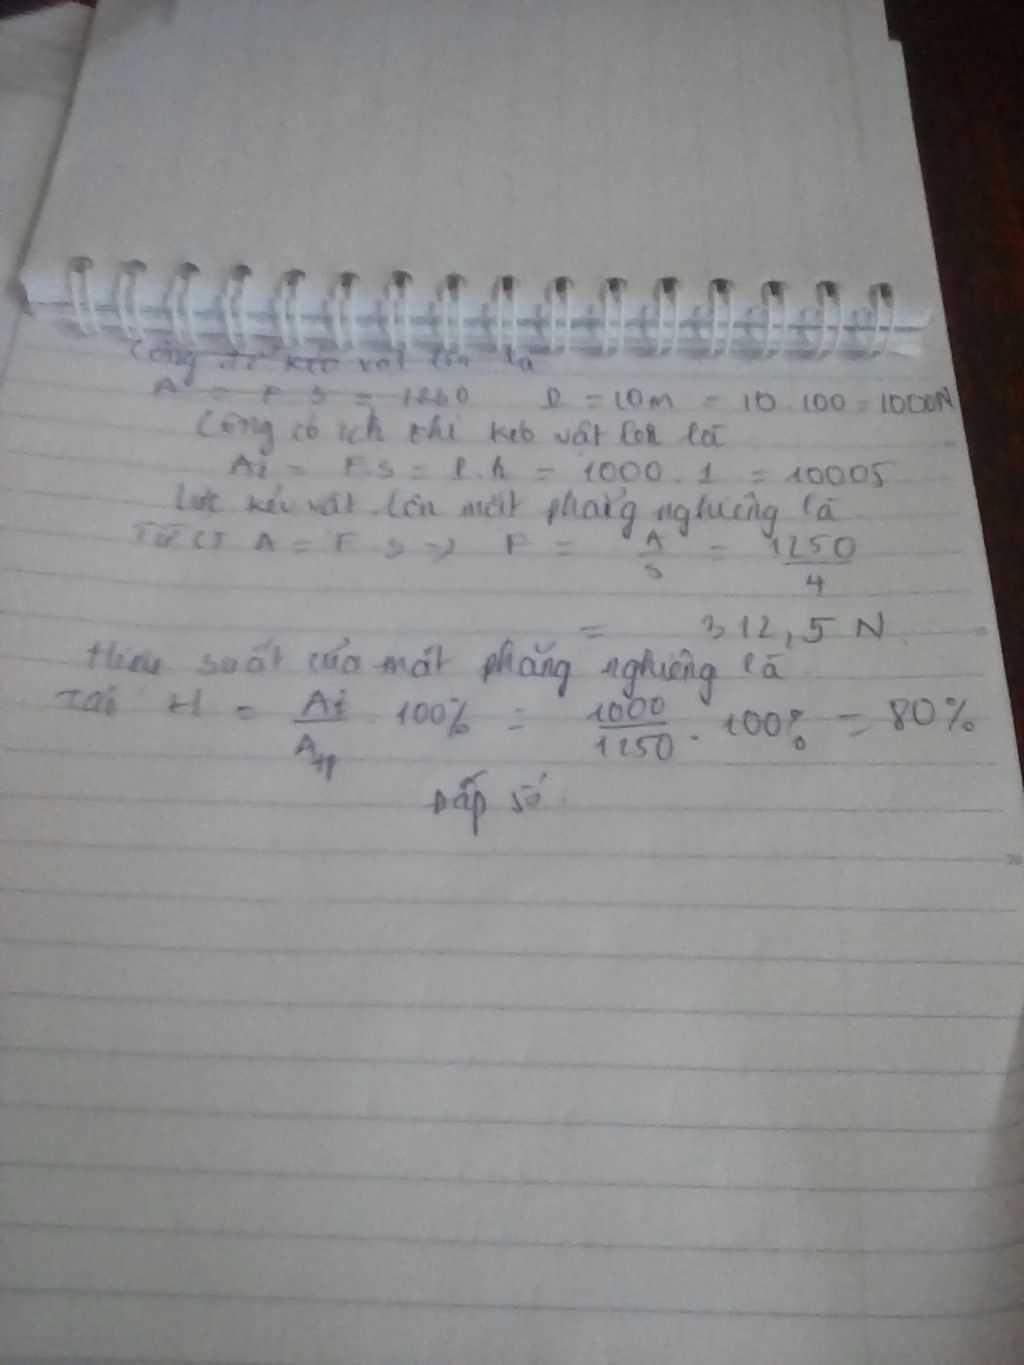 Công để kéo vật lên là
A = F S = 1260 P = 10m = 10.100 = 1000N
Công có ích khi kéo vật lên là
Ai = F.s = P.h = 1000.1 = 1000J
Lực kéo vật lên mặt phẳng nghiêng là
Từ CT A = F s => F = A/s = 1250/4
= 312,5 N
Hiệu suất của mặt phẳng nghiêng là
H = Ai/Atp 100% = 1000/1250 . 100% = 80%
Đấp số